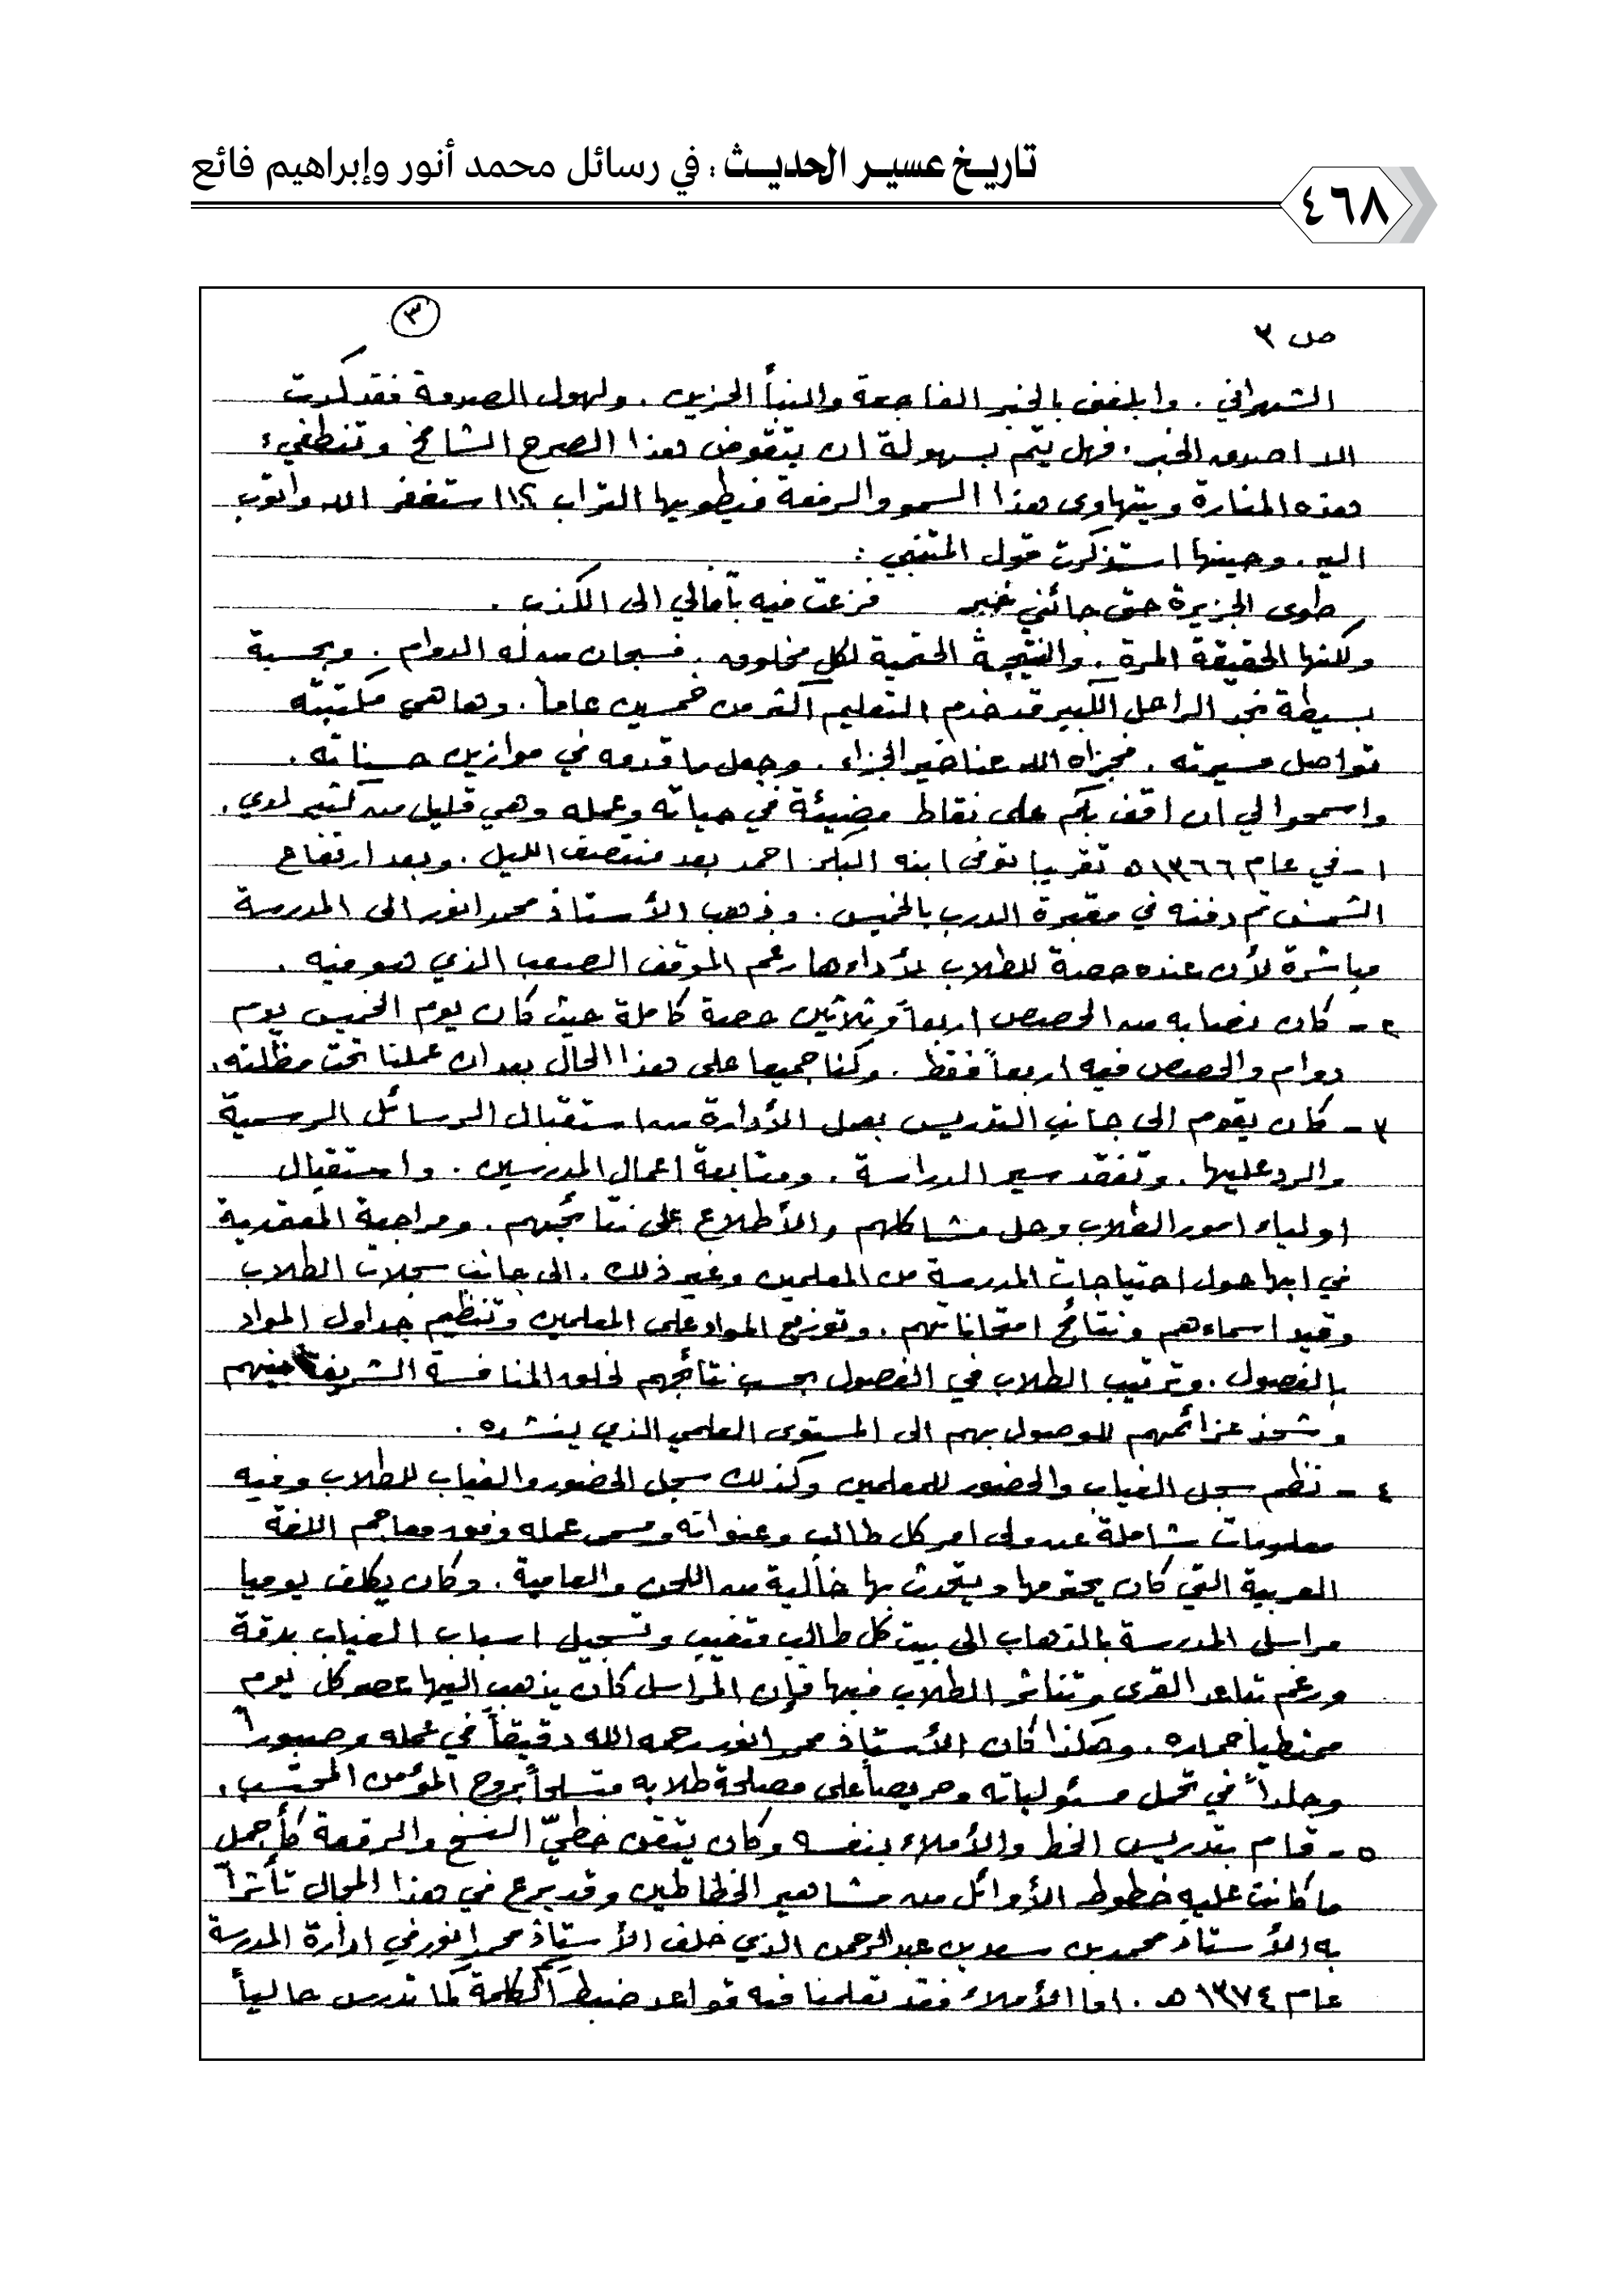 تاريخ عسير الحديث : في رسائل محمد أنور وإبراهيم فائع
٤٦٨
ص ٣
٣
الشهراني . وابلغني بالخبر الفاجعة والنبأ الحزين . ولهول الصدمة فقد كدت
الا اصدق الخبر . فهل يتم بسهولة ان يتقوض هذا الصرح الشامخ وتنطفيء
هذه المنارة ويتهاوى هذا السمو والرفعة فيطويها التراب ؟!! استغفر الله واتوب
اليه . وحينها استذكرت قول المتنبي :
طوى الجزيرة حتى جائني خبر فزعت فيه بآمالي الى الكذب .
ولكنها الحقيقة المرة . والنتيجة الحتمية لكل مخلوق . فسبحان من له الدوام . وبحسبة
بسيطة نجد الراحل الكبير قد خدم التعليم اكثر من خمسين عاماً . وها هي مكتبته
تواصل مسيرته . فجزاه الله عنا خير الجزاء . وجعل ما قدمه في موازين حسناته .
واسمحوا لي ان اقف بكم على نقاط مضيئة في حياته وعمله وهي قليل من كثير لدي .
١ - في عام ١٣٦٦ه تقريبا توفى ابنه البكر احمد بعد منتصف الليل . وبعد ارتفاع
الشمس تم دفنه في مقبرة الدرب بالخميس . وذهب الأستاذ محمد انور الى المدرسة
مباشرة لأن عنده حصة للطلاب لأداءها رغم الموقف الصعب الذي هو فيه .
٢ - كان نصابه من الحصص اربعاً وثلاثين حصة كاملة حيث كان يوم الخميس يوم
دوام والحصص فيه اربعاً فقط . وكنا جميعا على هذا الحال بعد ان عملنا تحت مظلته .
٣ - كان يقوم الى جانب التدريس بعمل الأدارة من استقبال الرسائل الرسمية
والرد عليها . وتفقد سير الدراسة . ومتابعة اعمال المدرسين . واستقبال
اولياء امور الطلاب وحل مشاكلهم والأطلاع على نتائجهم . ومراجعة المعتمدية
في ابها حول احتياجات المدرسة من المعلمين وغير ذلك . الى جانب سجلات الطلاب
وقيد اسماءهم ونتائج امتحاناتهم . وتوزيع المواد على المعلمين وتنظيم جداول المواد
بالفصول . وترتيب الطلاب في الفصول بحسب نتائجهم لخلق المنافسة الشريفة بينهم
وشحذ عزائمهم للوصول بهم الى المستوى العلمي الذي ينشده .
٤ - نظم سجل الغياب والحضور للمعلمين وكذلك سجل الحضور والغياب للطلاب وفيه
معلومات شاملة عن ولى امر كل طالب وعنوانه ومسمى عمله وفق معاجم اللغة
العربية التي كان يحترمها ويتحدث بها خالية من اللحن والعامية . وكان يكلف يوميا
مراسل المدرسة بالذهاب الى بيت كل طالب متغيب وتسجيل اسباب الغياب بدقة
ورغم تباعد القرى وتناثر الطلاب فيها فإن المراسل كان يذهب اليها عصر كل يوم
ممتطيا حماره . وهكذا كان الأستاذ محمد انور رحمه الله دقيقاً في عمله وصبوراً
وجلداً في تحمل مسئولياته وحريصاً على مصلحة طلابه متسلحاً بروح المؤمن المحتسب .
٥ - قام بتدريس الخط والأملاء بنفسه وكان يتقن خطيّ النسخ والرقعة كأجمل
ما كانت عليه خطوط الأوائل من مشاهير الخطاطين وقد برع في هذا المجال تأثراً
به الأستاذ محمد بن سعد بن عبدالرحمن الذي خلف الأستاذ محمد انور في ادارة المدرسة
عام ١٣٧٤ هـ . اما الأملاء فقد تعلمنا فيه قواعد ضبط الكلمة كما تدرس حالياً